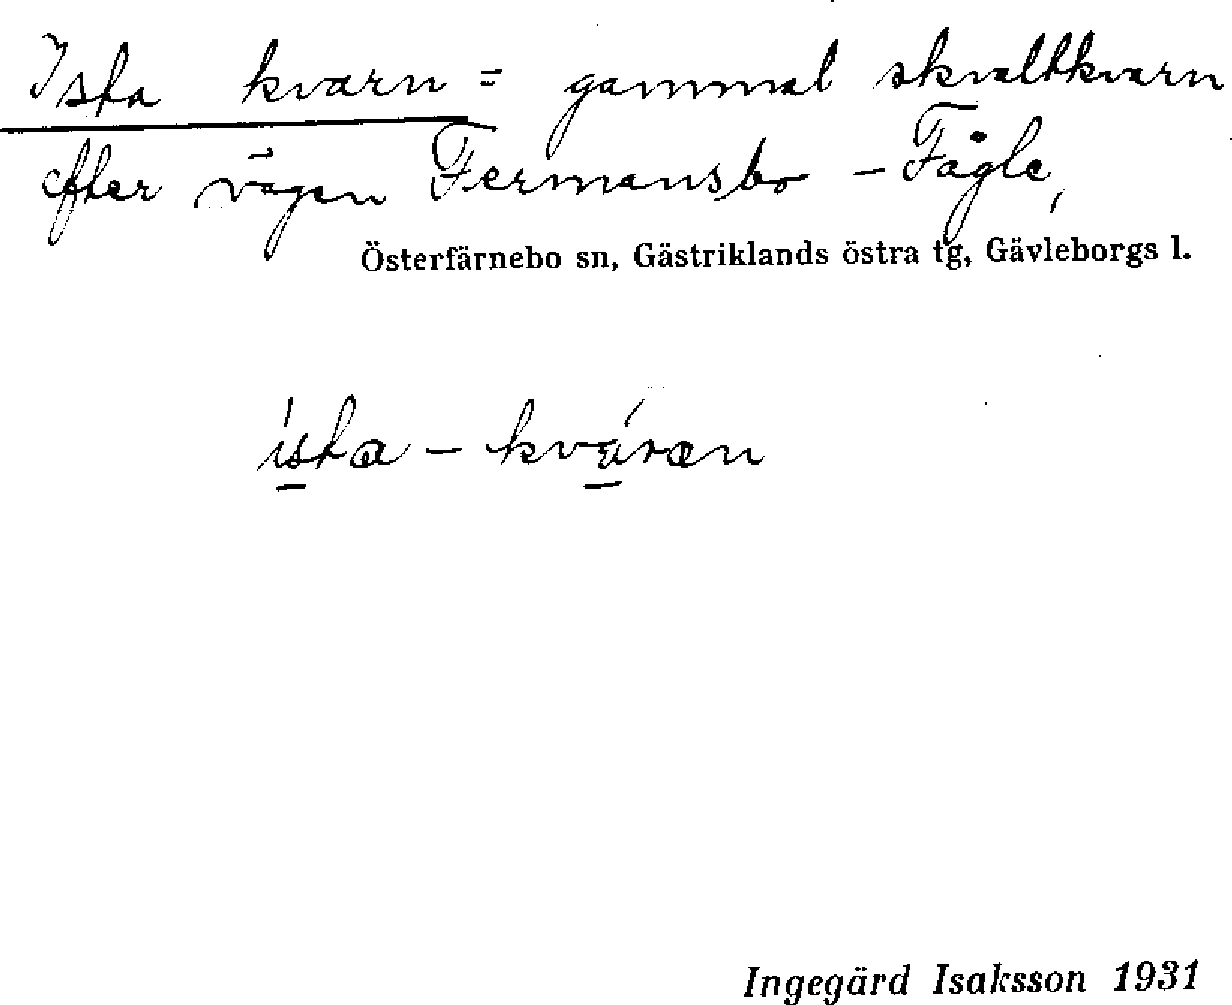 Ista kvarn = gammal skvaltkvarn
efter vägen Fermansbo - Fågle,
Österfärnebo sn, Gästriklands östra tg, Gävleborgs l.
ista - kváran
Ingegärd Isaksson 1931